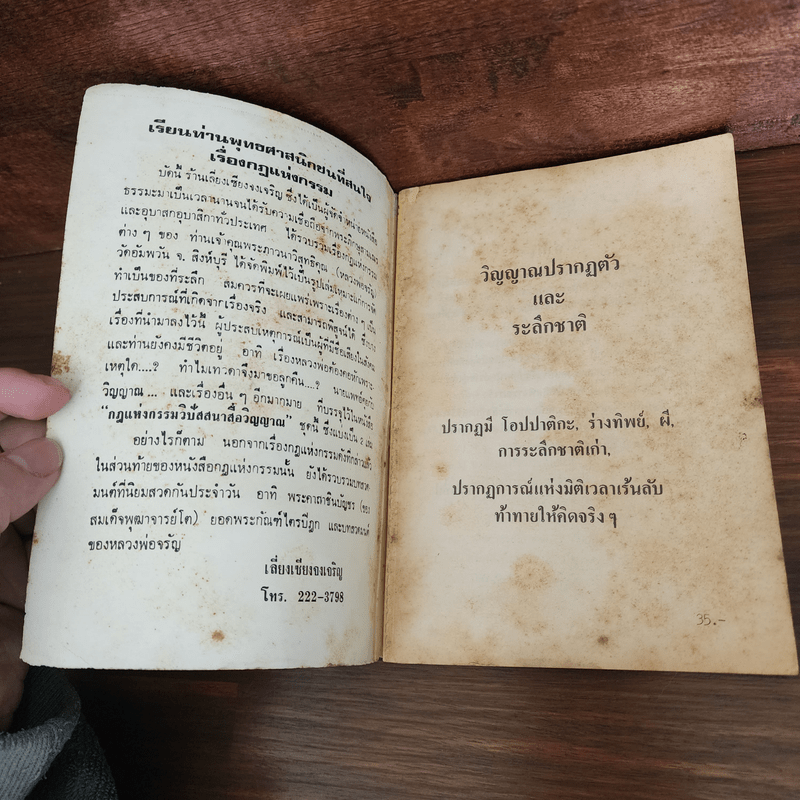 เรียนท่านพุทธศาสนิกชนที่สนใจ
เรื่องกฎแห่งกรรม
บัดนี้ ร้านเลี่ยงเซียงจงเจริญ ซึ่งได้เป็นผู้จัดจำหน่ายหนังสือ
ธรรมะมาเป็นเวลานานจนได้รับความเชื่อถือจากพระภิกษุสามเณร
และอุบาสกอุบาสิกาทั่วประเทศ ได้รวบรวมเรื่องกฎแห่งกรรม
ต่าง ๆ ของ ท่านเจ้าคุณพระภาวนาวิสุทธิคุณ (หลวงพ่อจรัญ)
วัดอัมพวัน จ. สิงห์บุรี ได้จัดพิมพ์ไว้เป็นรูปเล่มเหมาะแก่การให้
ทำเป็นของที่ระลึก สมควรที่จะเผยแพร่เพราะเรื่องต่าง ๆ เป็น
ประสบการณ์ที่เกิดจากเรื่องจริง และสามารถพิสูจน์ได้
เรื่องที่นำมาลงไว้นี้ ผู้ประสบเหตุการณ์เป็นผู้ที่มีชื่อเสียงในสังคม
และท่านยังคงมีชีวิตอยู่ อาทิ เรื่องหลวงพ่อต้องคอหักเพราะ
เหตุใด....? ทำไมเทวดาจึงมาขอลูกคืน....? นายแพทย์คุยกับ
วิญญาณ ... และเรื่องอื่น ๆ อีกมากมาย ที่บรรจุไว้ในหนังสือ
“กฎแห่งกรรมวิปัสสนาสื่อวิญญาณ” ชุดนี้ ซึ่งแบ่งเป็น 2 เล่ม
อย่างไรก็ตาม นอกจากเรื่องกฎแห่งกรรมดังที่กล่าวแล้ว
ในส่วนท้ายของหนังสือกฎแห่งกรรมนั้น ยังได้รวบรวมบทสวด
มนต์ที่นิยมสวดกันประจำวัน อาทิ พระคาถาชินบัญชร (ของ
สมเด็จพุฒาจารย์โต) ยอดพระกัณฑ์ไตรปิฎก และบทสวดมนต์
ของหลวงพ่อจรัญ
เลี่ยงเซียงจงเจริญ
โทร. 222-3798
วิญญาณปรากฏตัว
และ
ระลึกชาติ
ปรากฏมี โอปปาติกะ, ร่างทิพย์, ผี,
การระลึกชาติเก่า,
ปรากฏการณ์แห่งมิติเวลาเร้นลับ
ท้าทายให้คิดจริง ๆ
35.-